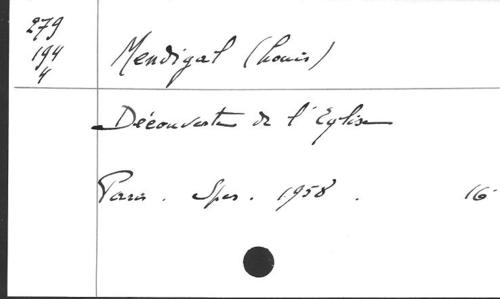 279
194
4
Mendigal (Louis)
Découverte de l'Eglise
Paris. Spes. 1958. 16